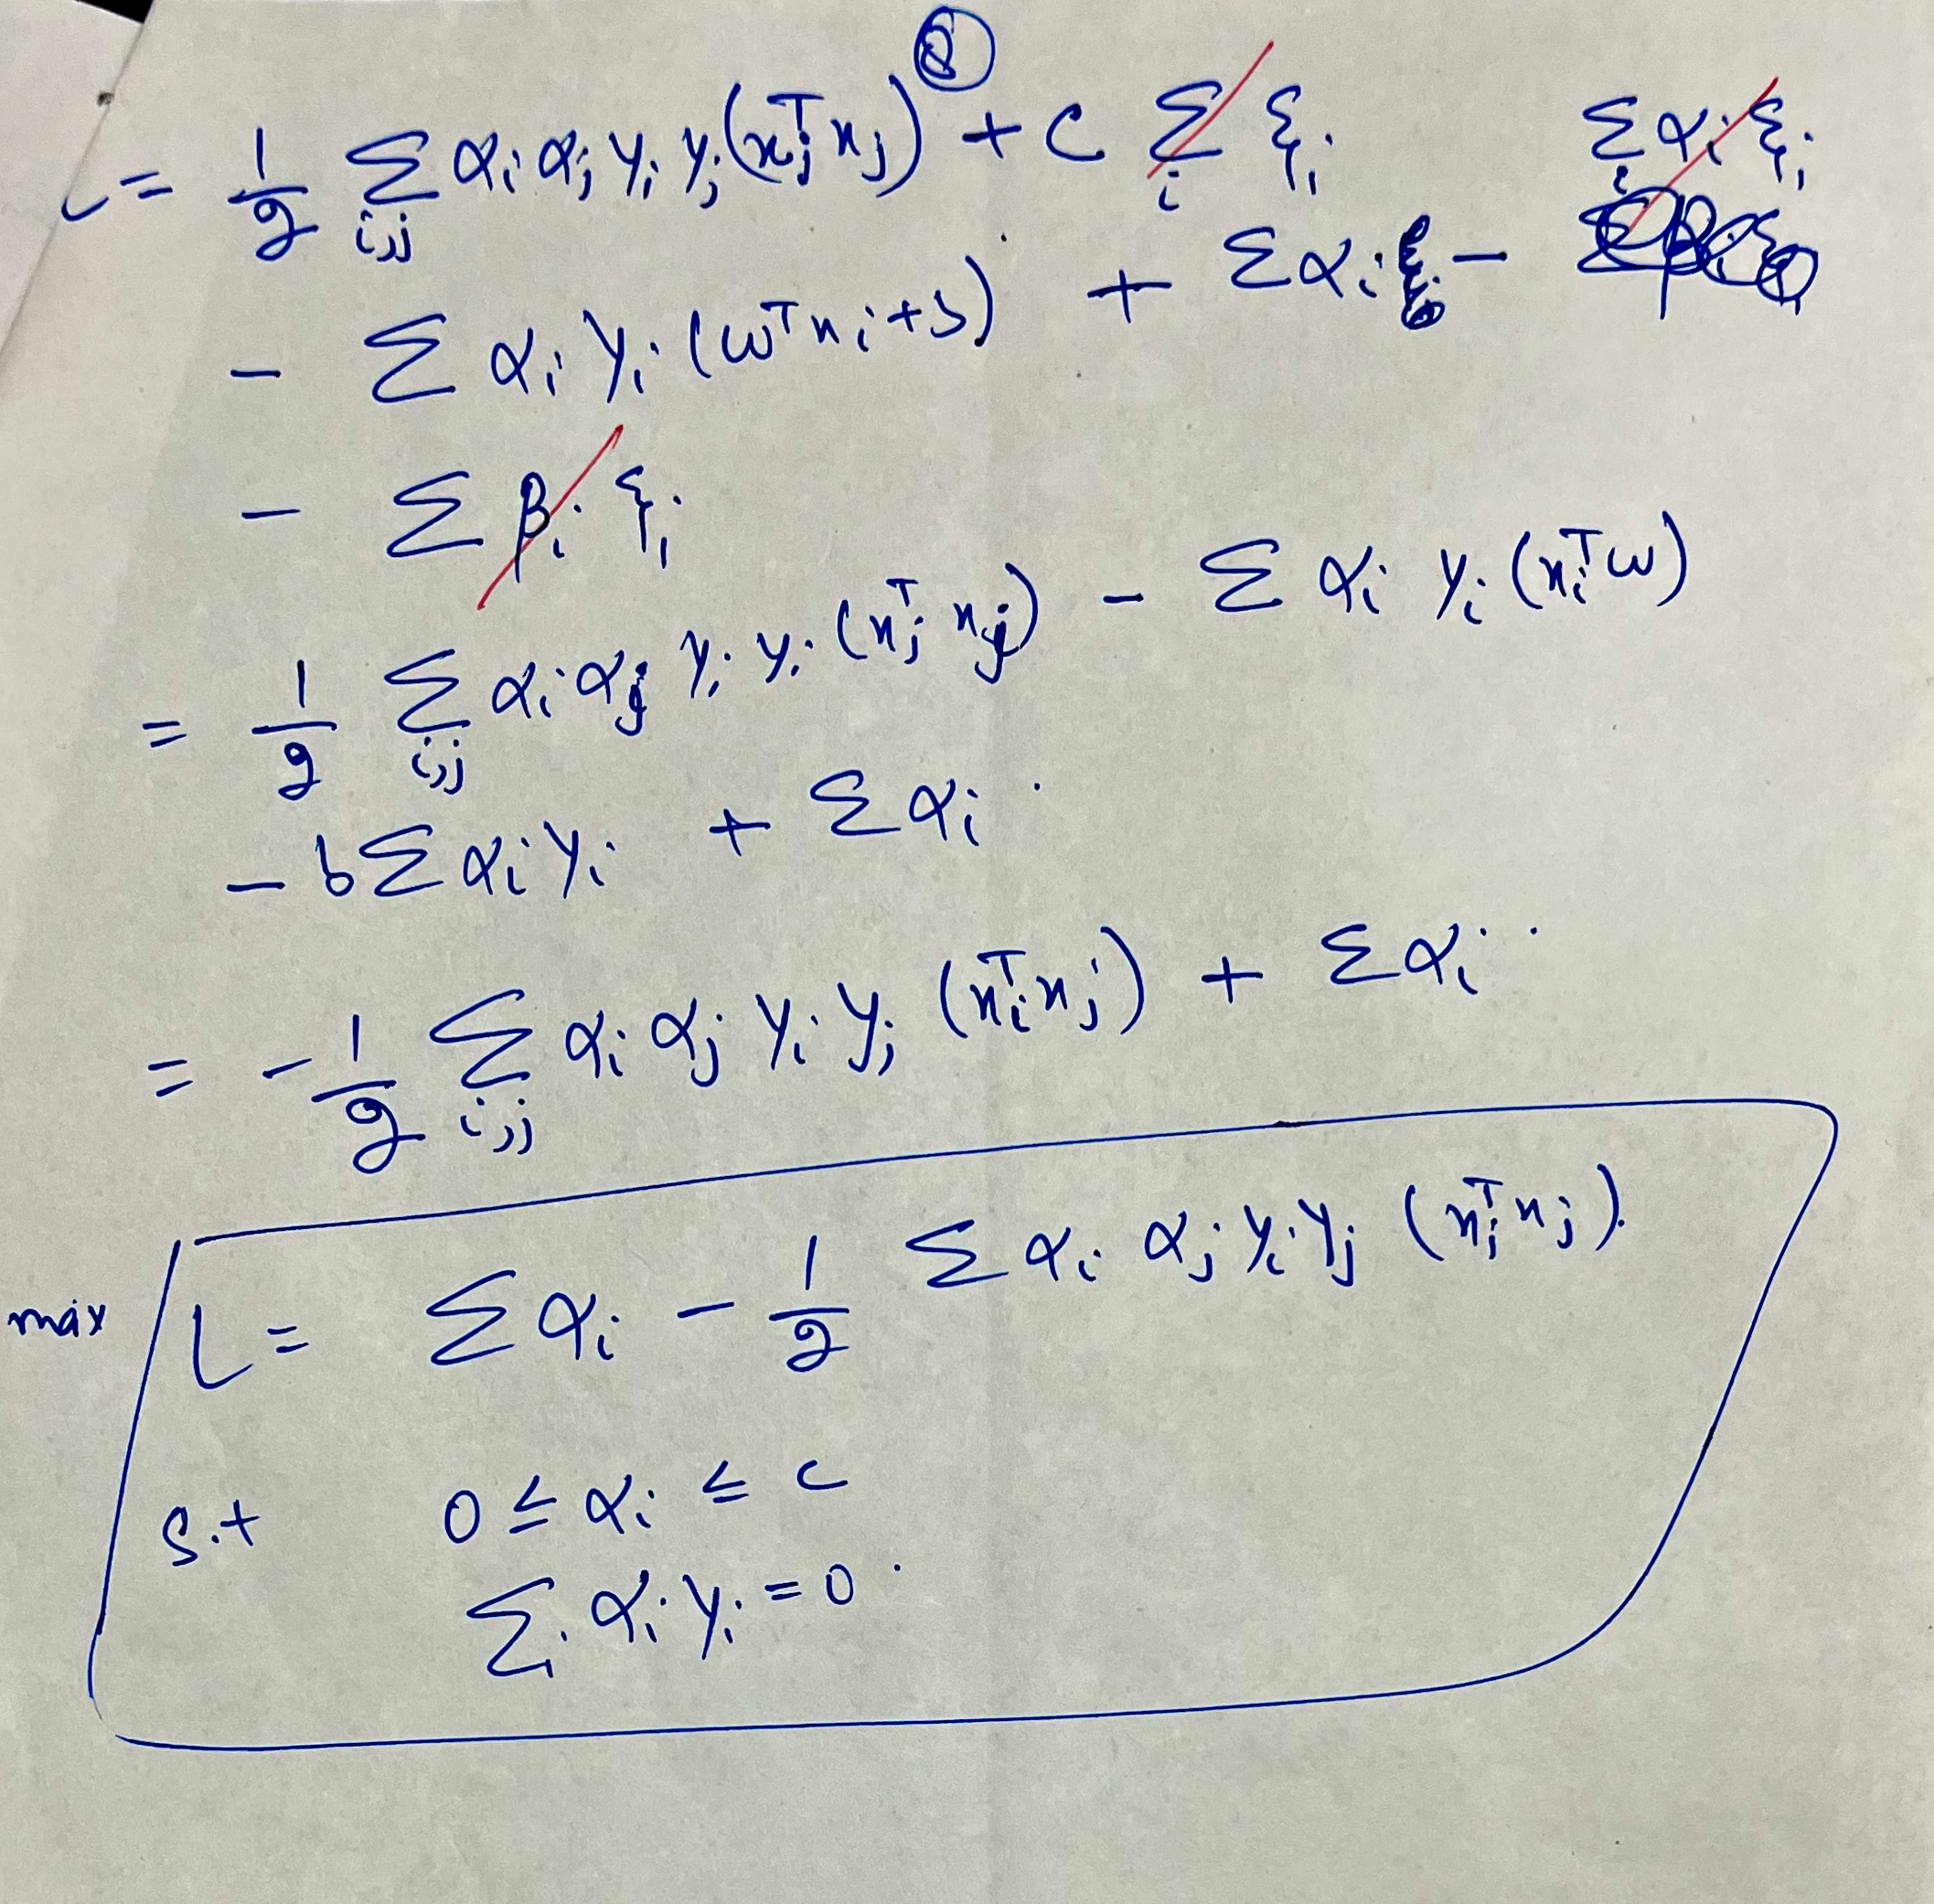 L = 1/2 Σ_{i,j} α_i α_j y_i y_j (x_j^T x_j) + C Σ_i ξ_i
- Σ α_i y_i (w^T x_i + b) + Σ α_i - Σ_i α_i ξ_i
- Σ β_i ξ_i
= 1/2 Σ_{i,j} α_i α_j y_i y_i (x_j^T x_j) - Σ α_i y_i (x_i^T w)
- b Σ α_i y_i + Σ α_i
= -1/2 Σ_{i,j} α_i α_j y_i y_j (x_i^T x_j) + Σ α_i
max L = Σ α_i - 1/2 Σ α_i α_j y_i y_j (x_i^T x_j).
s.t 0 ≤ α_i ≤ C
Σ_i α_i y_i = 0